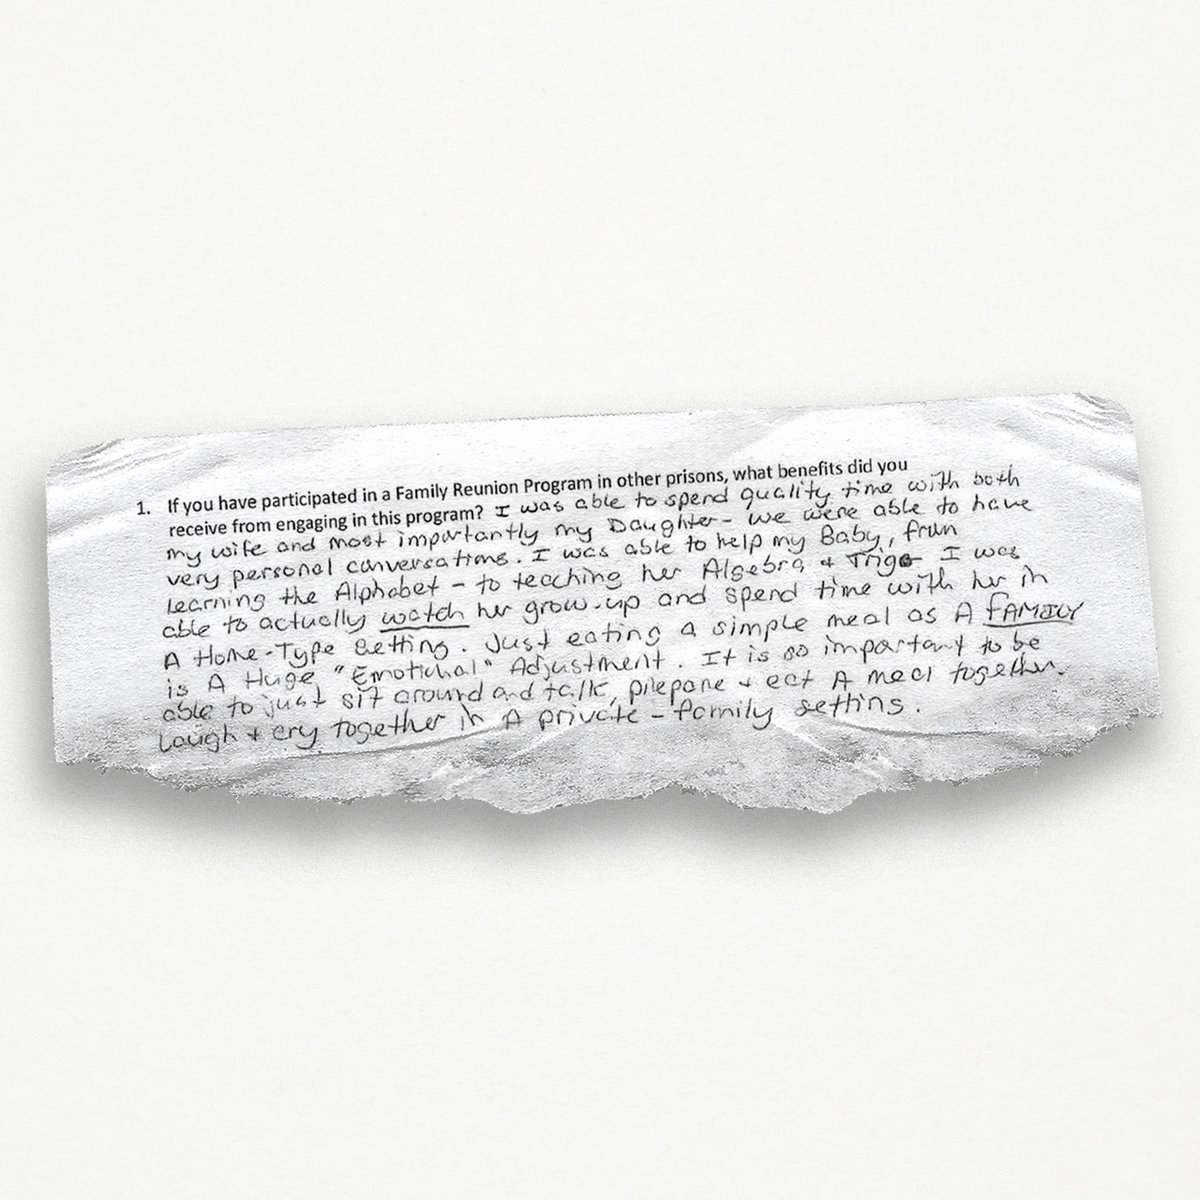 1. If you have participated in a Family Reunion Program in other prisons, what benefits did you
receive from engaging in this program? I was able to spend quality time with both
my wife and most importantly my Daughter - we were able to have
very personal conversations. I was able to help my Baby, from
learning the Alphabet - to teaching her Algebra + Trigo I was
able to actually watch her grow-up and spend time with her in
A Home-Type setting. Just eating a simple meal as A FAMILY
is A Huge "Emotional" Adjustment. It is so important to be
able to just sit around and talk, prepare + eat A meal together.
Laugh + cry together in A private - family setting.